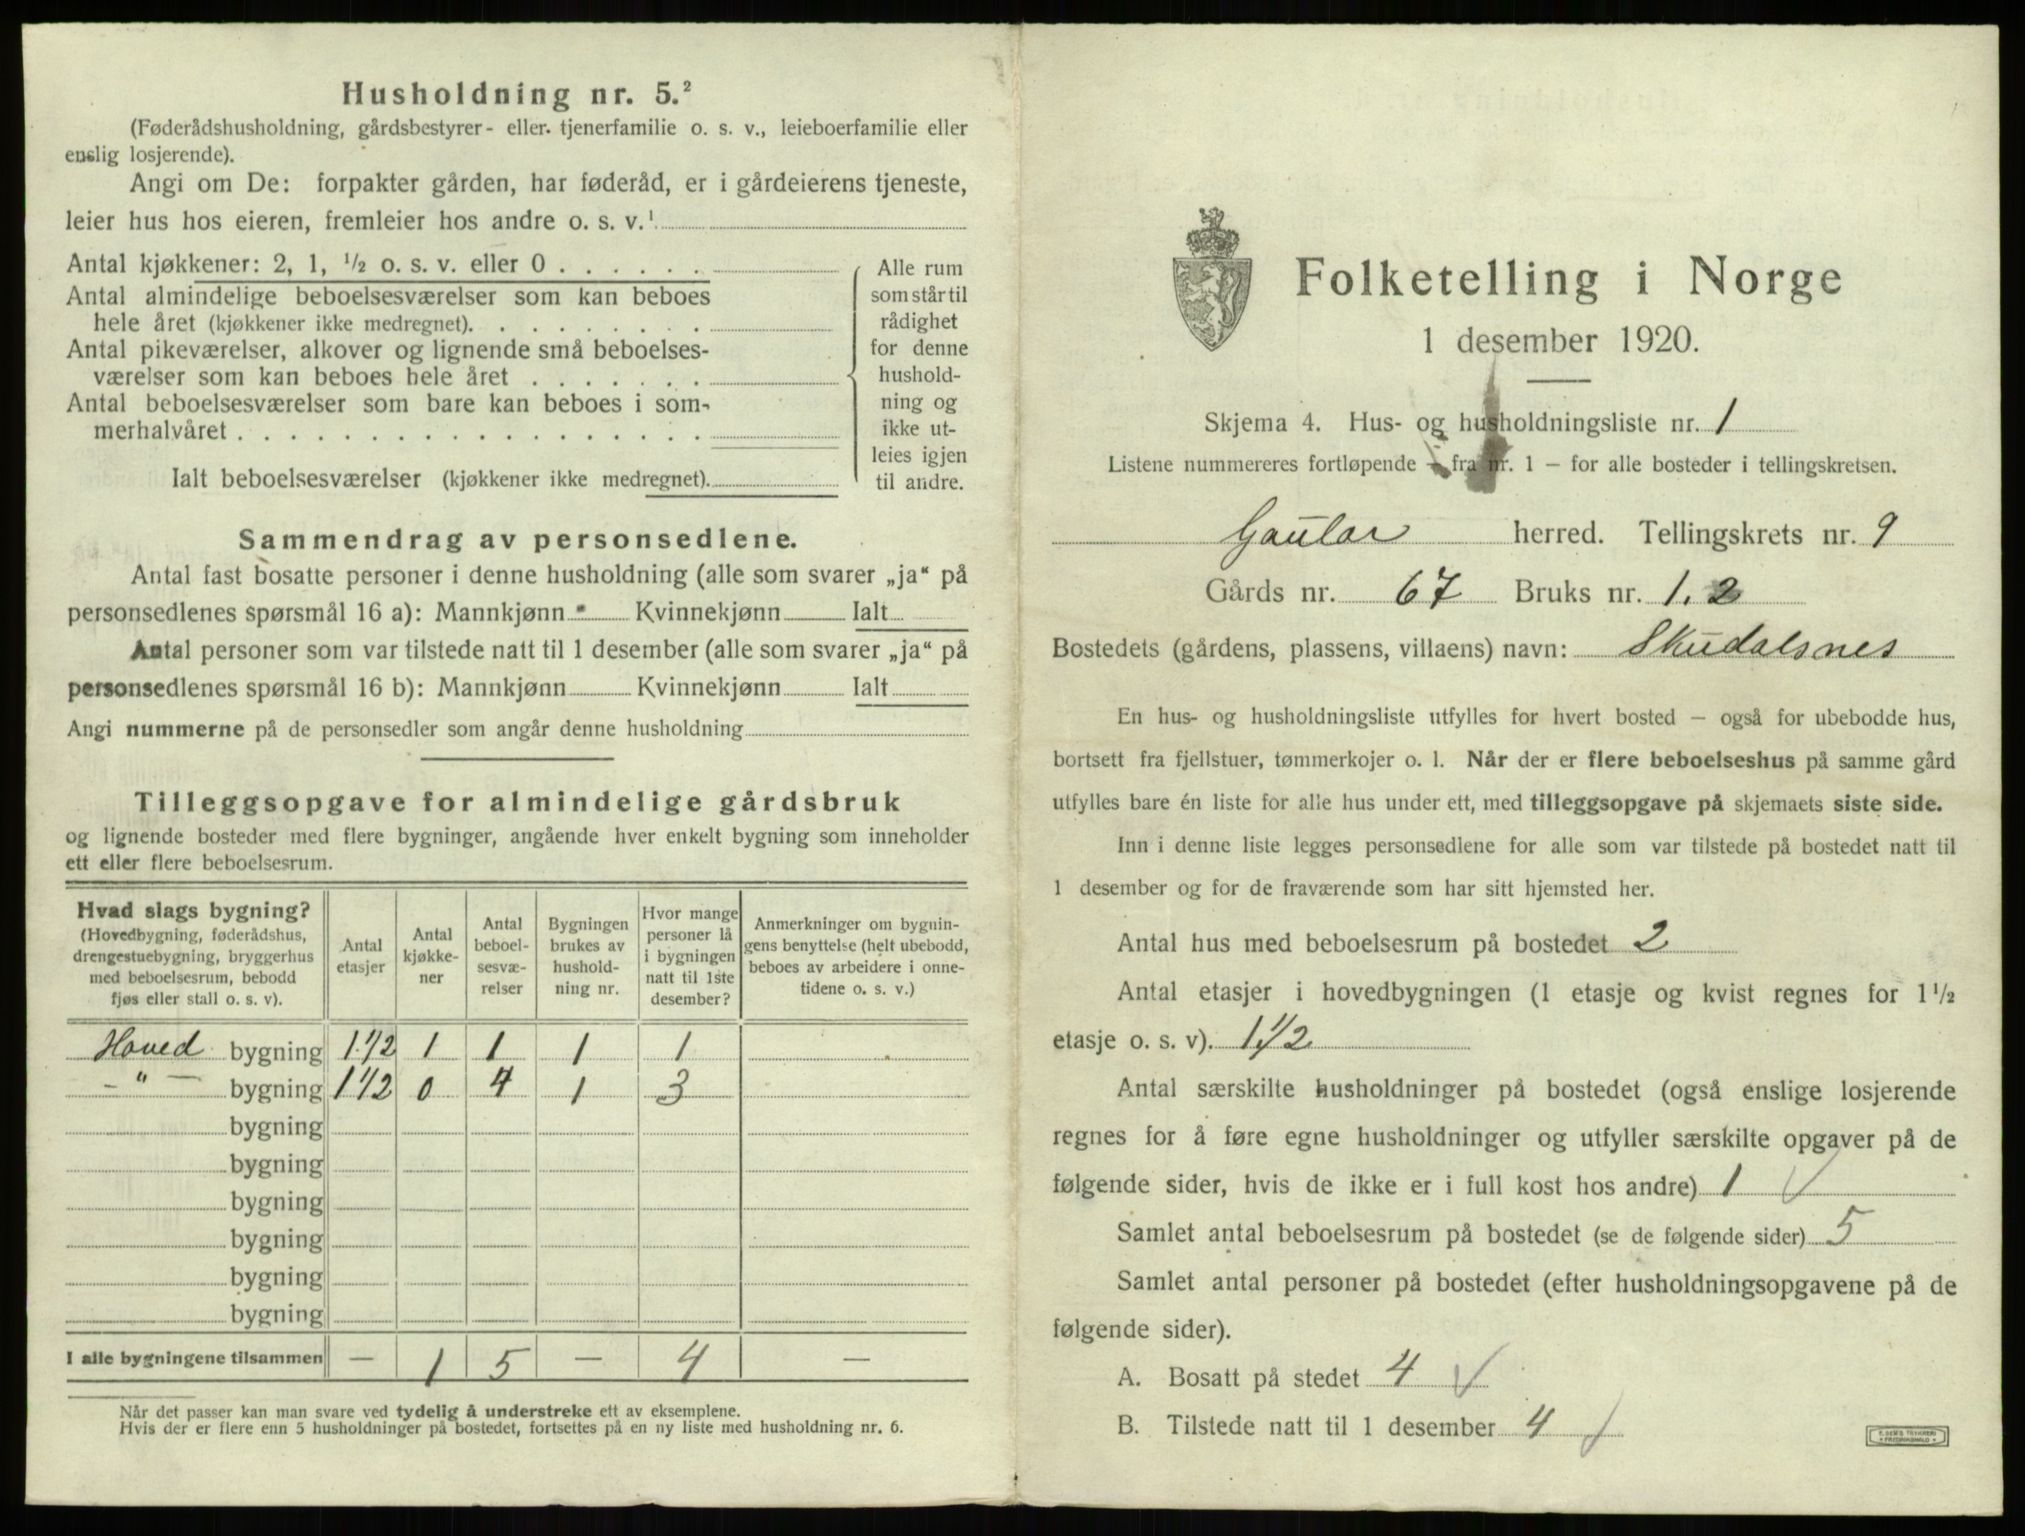 Husholdning nr. 5.²
(Føderådshusholdning, gårdsbestyrer- eller tjenerfamilie o. s. v., leieboerfamilie eller
enslig losjerende).
Angi om De: forpakter gården, har føderåd, er i gårdeierens tjeneste,
leier hus hos eieren, fremleier hos andre o. s. v.¹
Antal kjøkkener: 2, 1, ½ o. s. v. eller 0 . . . . . .
Antal almindelige beboelsesværelser som kan beboes
hele året (kjøkkener ikke medregnet). . . . . . . . .
Antal pikeværelser, alkover og lignende små beboelses-
værelser som kan beboes hele året . . . . . . .
Antal beboelsesværelser som bare kan beboes i som-
merhalvåret . . . . . . . . . . . . . . . . . .
Ialt beboelsesværelser (kjøkkener ikke medregnet).
Alle rum
som står til
rådighet
for denne
hushold-
ning og
ikke ut-
leies igjen
til andre.
Sammendrag av personsedlene.
Antal fast bosatte personer i denne husholdning (alle som svarer „ja“ på
personsedlenes spørsmål 16 a): Mannkjønn Kvinnekjønn Ialt
Antal personer som var tilstede natt til 1 desember (alle som svarer „ja“ på
personsedlenes spørsmål 16 b): Mannkjønn Kvinnekjønn Ialt
Angi nummerne på de personsedler som angår denne husholdning
Tilleggsopgave for almindelige gårdsbruk
og lignende bosteder med flere bygninger, angående hver enkelt bygning som inneholder
ett eller flere beboelsesrum.
Hvad slags bygning?
(Hovedbygning, føderådshus,
drengestuebygning, bryggerhus
med beboelsesrum, bebodd
fjøs eller stall o. s. v).
Antal
etasjer
Antal
kjøkke-
ner
Antal
beboel-
sesvæ-
relser
Bygningen
brukes av
hushold-
ning nr.
Hvor mange
personer lå
i bygningen
natt til 1ste
desember?
Anmerkninger om bygnin-
gens benyttelse (helt ubebodd,
beboes av arbeidere i onne-
tidene o. s. v.)
Hoved bygning 1 1/2 1 1 1 1
- " - bygning 1 1/2 0 4 1 3
bygning
bygning
bygning
bygning
bygning
bygning
I alle bygningene tilsammen — 1 5 — 4 —
Når det passer kan man svare ved tydelig å understreke ett av eksemplene.
Hvis der er flere enn 5 husholdninger på bostedet, fortsettes på en ny liste med husholdning nr. 6.
Folketelling i Norge
1 desember 1920.
Skjema 4. Hus- og husholdningsliste nr. 1
Listene nummereres fortløpende – fra nr. 1 – for alle bosteder i tellingskretsen.
Gaular herred. Tellingskrets nr. 9
Gårds nr. 67 Bruks nr. 1. 2
Bostedets (gårdens, plassens, villaens) navn: Skudalsnes
En hus- og husholdningsliste utfylles for hvert bosted – også for ubebodde hus,
bortsett fra fjellstuer, tømmerkojer o. l. Når der er flere beboelseshus på samme gård
utfylles bare én liste for alle hus under ett, med tilleggsopgave på skjemaets siste side.
Inn i denne liste legges personsedlene for alle som var tilstede på bostedet natt til
1 desember og for de fraværende som har sitt hjemsted her.
Antal hus med beboelsesrum på bostedet 2
Antal etasjer i hovedbygningen (1 etasje og kvist regnes for 1½
etasje o. s. v). 1 1/2
Antal særskilte husholdninger på bostedet (også enslige losjerende
regnes for å føre egne husholdninger og utfyller særskilte opgaver på de
følgende sider, hvis de ikke er i full kost hos andre) 1
Samlet antal beboelsesrum på bostedet (se de følgende sider) 5
Samlet antal personer på bostedet (efter husholdningsopgavene på de
følgende sider).
A. Bosatt på stedet 4
B. Tilstede natt til 1 desember 4